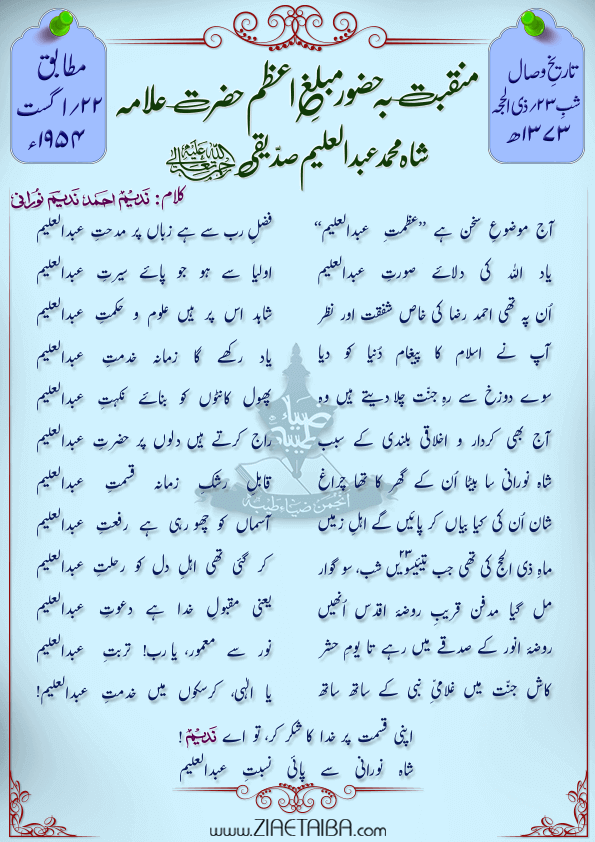 تاریخِ وصال
شبِ ۲۳؍ ذی الحجہ
۱۳۷۳ھ
مطابق
۲۲؍ اگست
۱۹۵۴ء
منقبت بہ حضور مبلغِ اعظم حضرت علامہ
شاہ محمد عبدالعلیم صدّیقی رحمۃ اللہ تعالیٰ علیہ
کلام: ندیمؔ احمد ندیمؔ نورانی
آج موضوعِ سخن ہے ”عظمتِ عبدالعلیم“ فضلِ رب سے ہے زباں پر مدحتِ عبدالعلیم
یاد اللہ کی دلائے صورتِ عبدالعلیم اولیا سے ہو جو پائے سیرتِ عبدالعلیم
اُن پہ تھی احمد رضا کی خاص شفقت اور نظر شاہد اس پر ہیں علوم و حکمتِ عبدالعلیم
آپ نے اسلام کا پیغام دُنیا کو دیا یاد رکھے گا زمانہ خدمتِ عبدالعلیم
سوے دوزخ سے رہِ جنّت چلا دیتے ہیں وہ پھول کانٹوں کو بنائے نکہتِ عبدالعلیم
آج بھی کردار و اخلاقی بلندی کے سبب راج کرتے ہیں دلوں پر حضرتِ عبدالعلیم
شاہ نورانی سا بیٹا اُن کے گھر کا تھا چراغ قابلِ رشکِ زمانہ قسمتِ عبدالعلیم
شان اُن کی کیا بیاں کر پائیں گے اہلِ زمیں آسماں کو چھو رہی ہے رفعتِ عبدالعلیم
ماہِ ذی الحج کی تھی جب تیئیسویں ۲۳ شب، سوگوار کر گئی تھی اہلِ دل کو رحلتِ عبدالعلیم
مل گیا مدفن قریبِ روضۂ اقدس اُنھیں یعنی مقبولِ خدا ہے دعوتِ عبدالعلیم
روضۂ انور کے صدقے میں رہے تا یومِ حشر نور سے معمور، یا رب! تربتِ عبدالعلیم
کاش جنّت میں غلامیِ نبی کے ساتھ ساتھ یا الٰہی، کرسکوں میں خدمتِ عبدالعلیم!
اپنی قسمت پر خدا کا شکر کر، تو اے ندیمؔ!
شاہ نورانی سے پائی نسبتِ عبدالعلیم
ضیاء طیبہ
انجمن ضیاء طیبہ
www.ZIAETAIBA.com